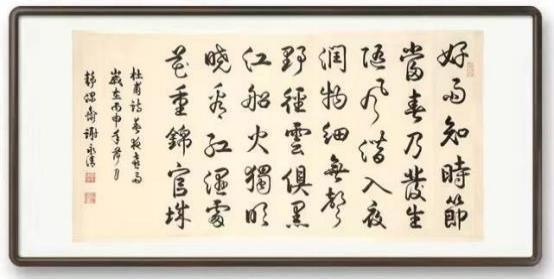 好雨知時節
當春乃發生
隨風潛入夜
潤物細無聲
野徑雲俱黑
江船火獨明
曉看紅濕處
花重錦官城
杜甫詩春夜喜雨
歲在丙申年荷月
謝永清